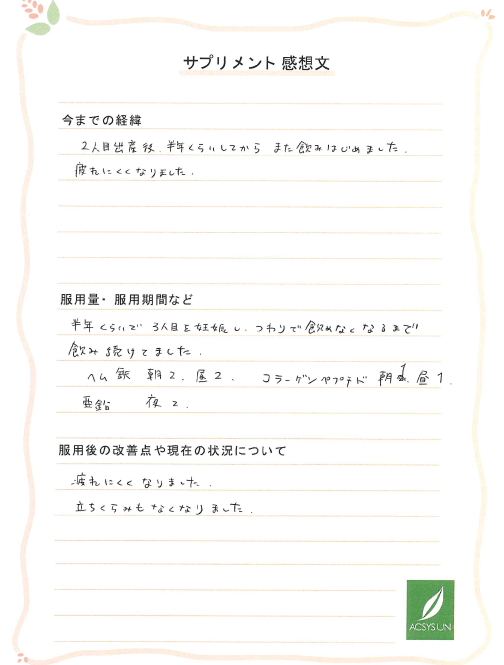 サプリメント 感想文
今までの経緯
2人目出産後、半年くらいしてから また飲みはじめました.
疲れにくくなりました.
服用量・服用期間など
半年くらいで 3人目を妊娠し、つわりで飲めなくなるまで
飲み続けてました.
ヘム鉄 朝2. 昼2. コラーゲンペプチド 朝1. 昼1.
亜鉛 夜2.
服用後の改善点や現在の状況について
疲れにくくなりました.
立ちくらみもなくなりました.
ACSYSUN